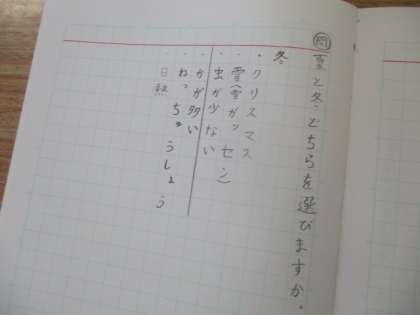 問 夏と冬、どちらを選びますか。
冬
・クリスマス
・雪(雪ガッセン)
・虫が少ない
・かが多い
・ねっちゅうしょう
・日熱